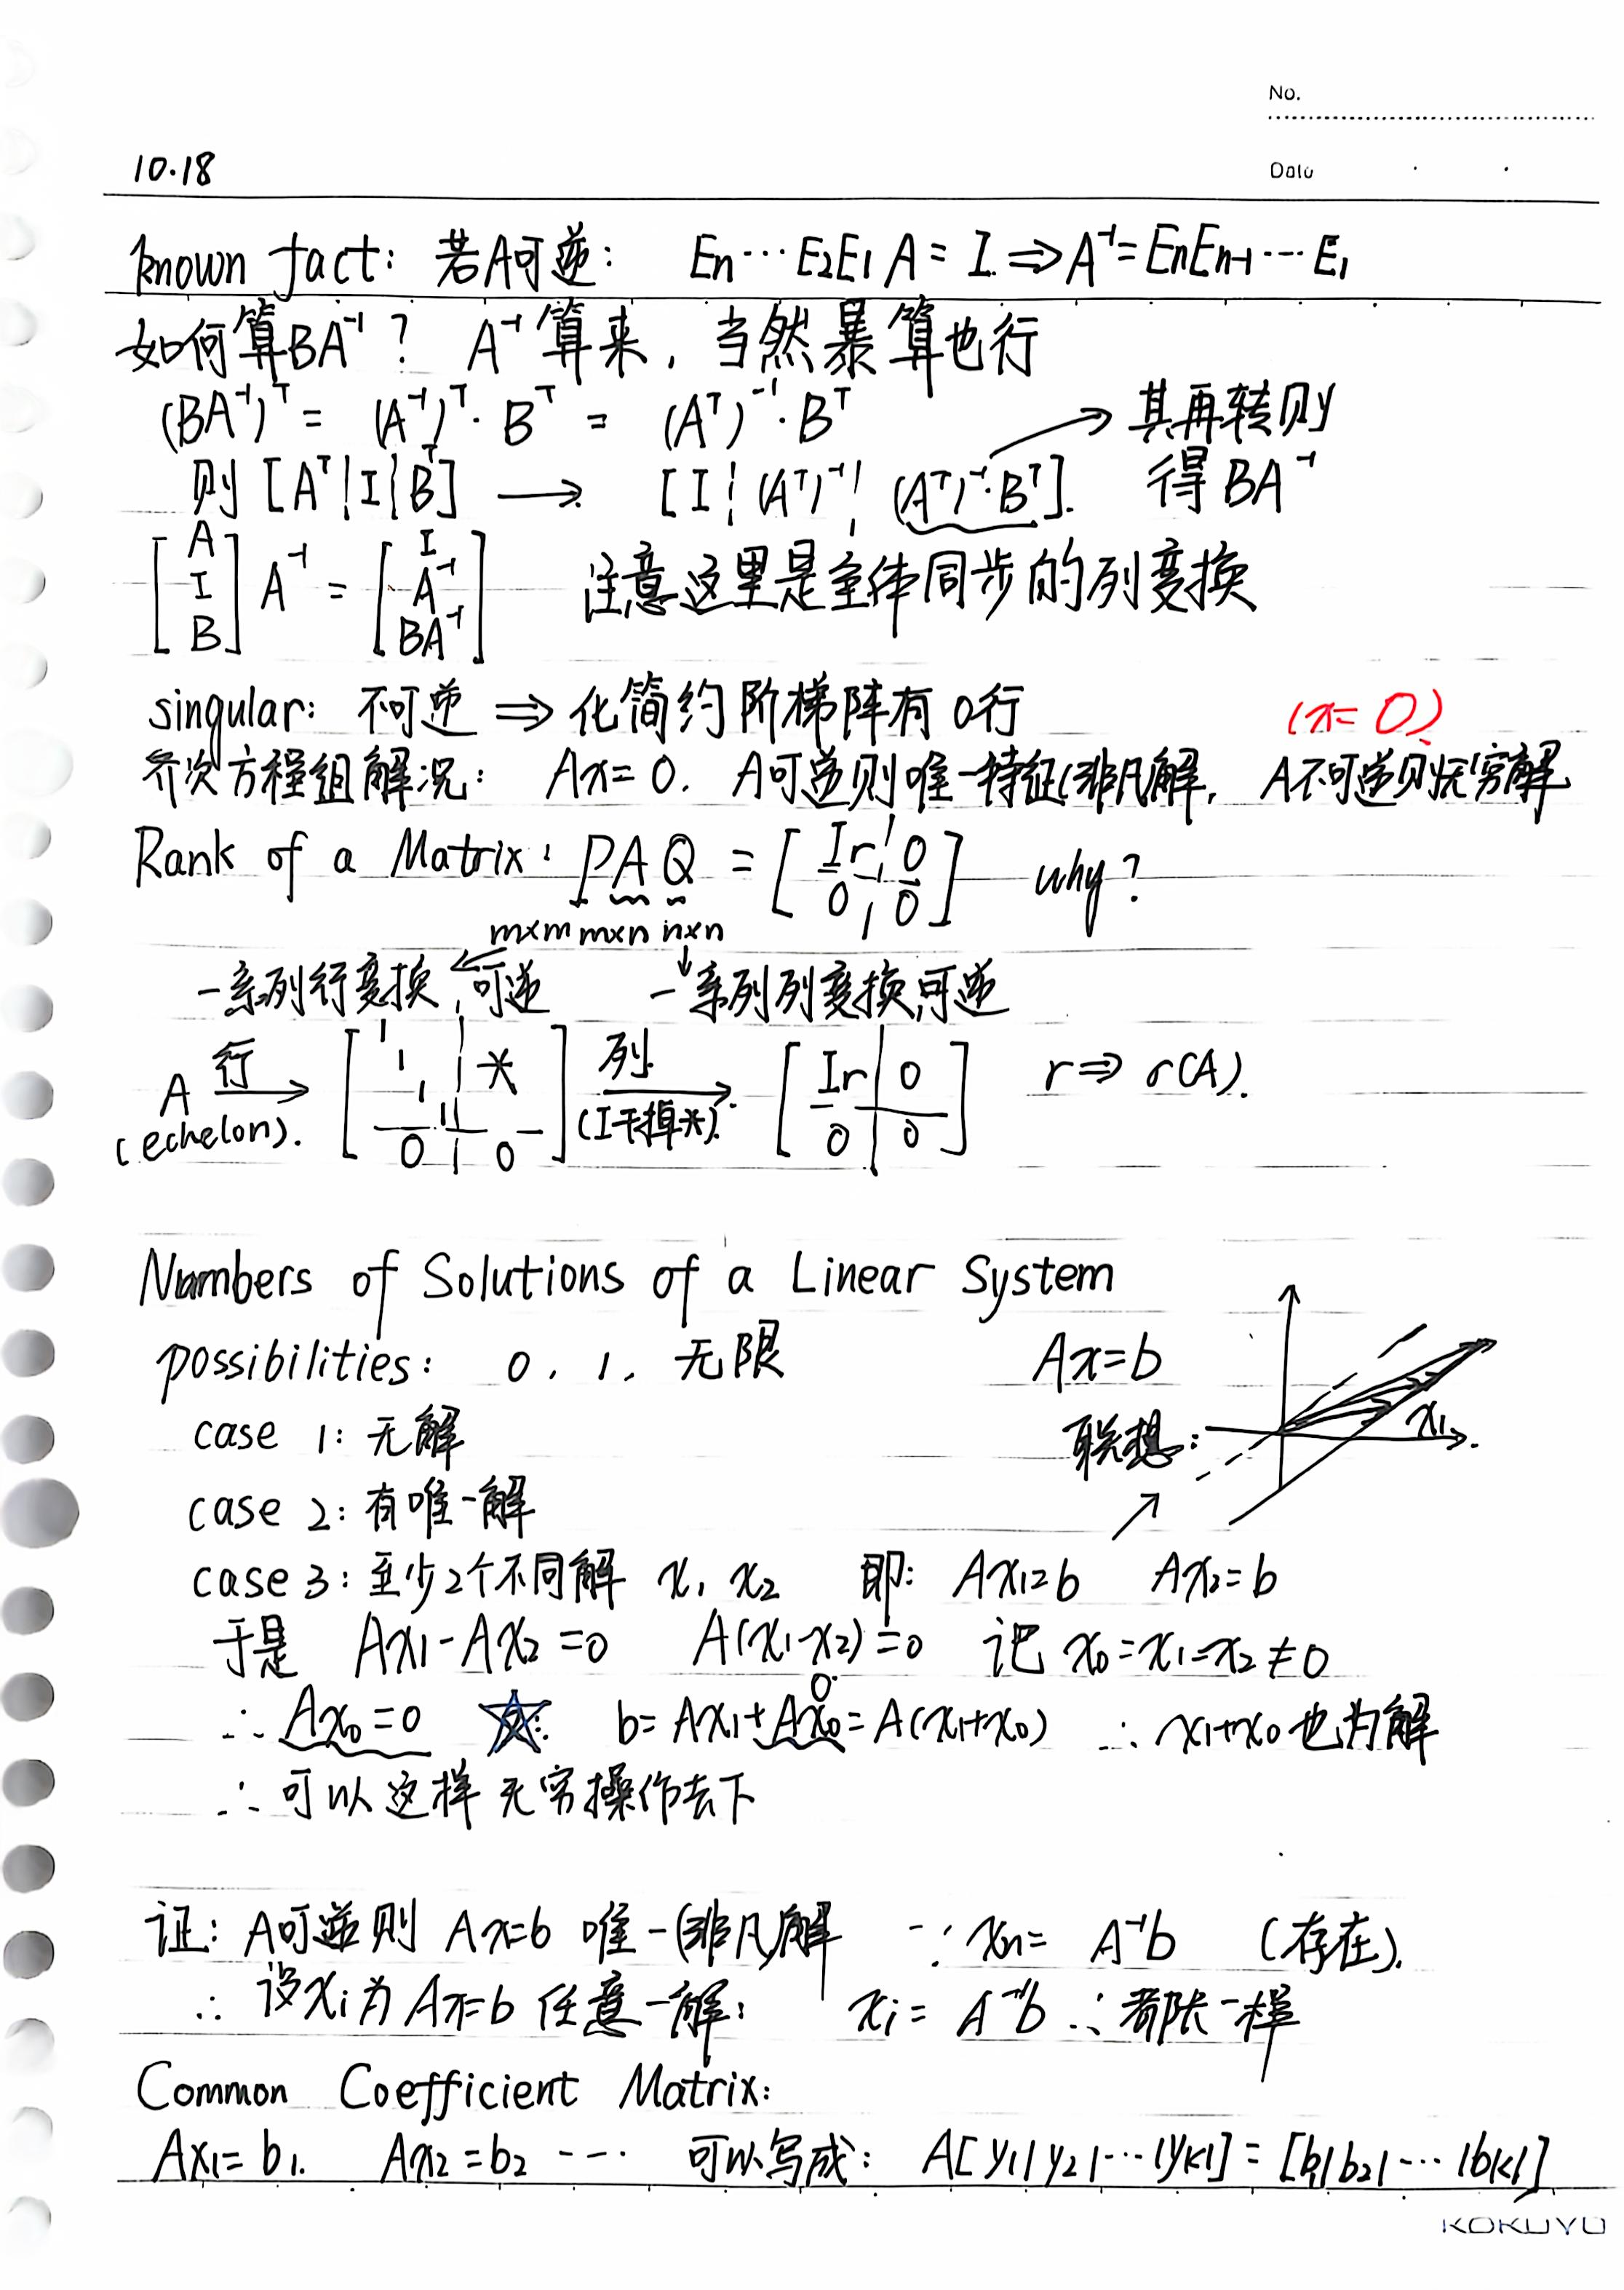 No.
Date
10.18
known fact: 若A可逆: En…E2E1A = I. ⇒ A⁻¹ = EnEn-1…E1
如何算BA⁻¹? A⁻¹算来, 当然暴算也行
(BA⁻¹)ᵀ = (A⁻¹)ᵀ·Bᵀ = (Aᵀ)⁻¹·Bᵀ → 其再转则
则 [Aᵀ|I|Bᵀ] → [I|(Aᵀ)⁻¹|(Aᵀ)⁻¹·Bᵀ]. 得BA⁻¹
[A I B] A⁻¹ = [I A⁻¹ BA⁻¹] 注意这里是全体同步的列变换
singular: 不可逆 ⇒ 化简约阶梯阵有0行 (x=0)
齐次方程组解况: Ax=0. A可逆则唯一特征(非凡解, A不可逆则无穷解
Rank of a Matrix: PAQ = [Ir 0 0 0] why?
m×m m×n n×n
一系列行变换,可逆 一系列列变换,可逆
A 行→ [1 1 1 1 * 0 0] 列→ [Ir 0 0 0] r ⇒ r(A).
(echelon). (I干掉*).
Numbers of Solutions of a Linear System
possibilities: 0, 1, 无限 Ax=b
case 1: 无解 联想: x1
case 2: 有唯一解
case 3: 至少2个不同解 x1 x2 即: Ax1=b Ax2=b
于是 Ax1-Ax2=0 A(x1-x2)=0 记 x0=x1-x2≠0
∴ Ax0=0 ☆: b=Ax1+Ax0=A(x1+x0) ∴ x1+x0也为解
0
∴ 可以这样无穷操作去下
证: A可逆则 Ax=b 唯一(非凡)解 ∵ xn= A⁻¹b (存在).
∴ 设xi为Ax=b任意一解: xi = A⁻¹b ∴ 都长一样
Common Coefficient Matrix:
Ax1=b1. Ax2=b2 … 可以写成: A[y1|y2|…|yk|] = [b1|b2|…|bk|]
KOKUYO